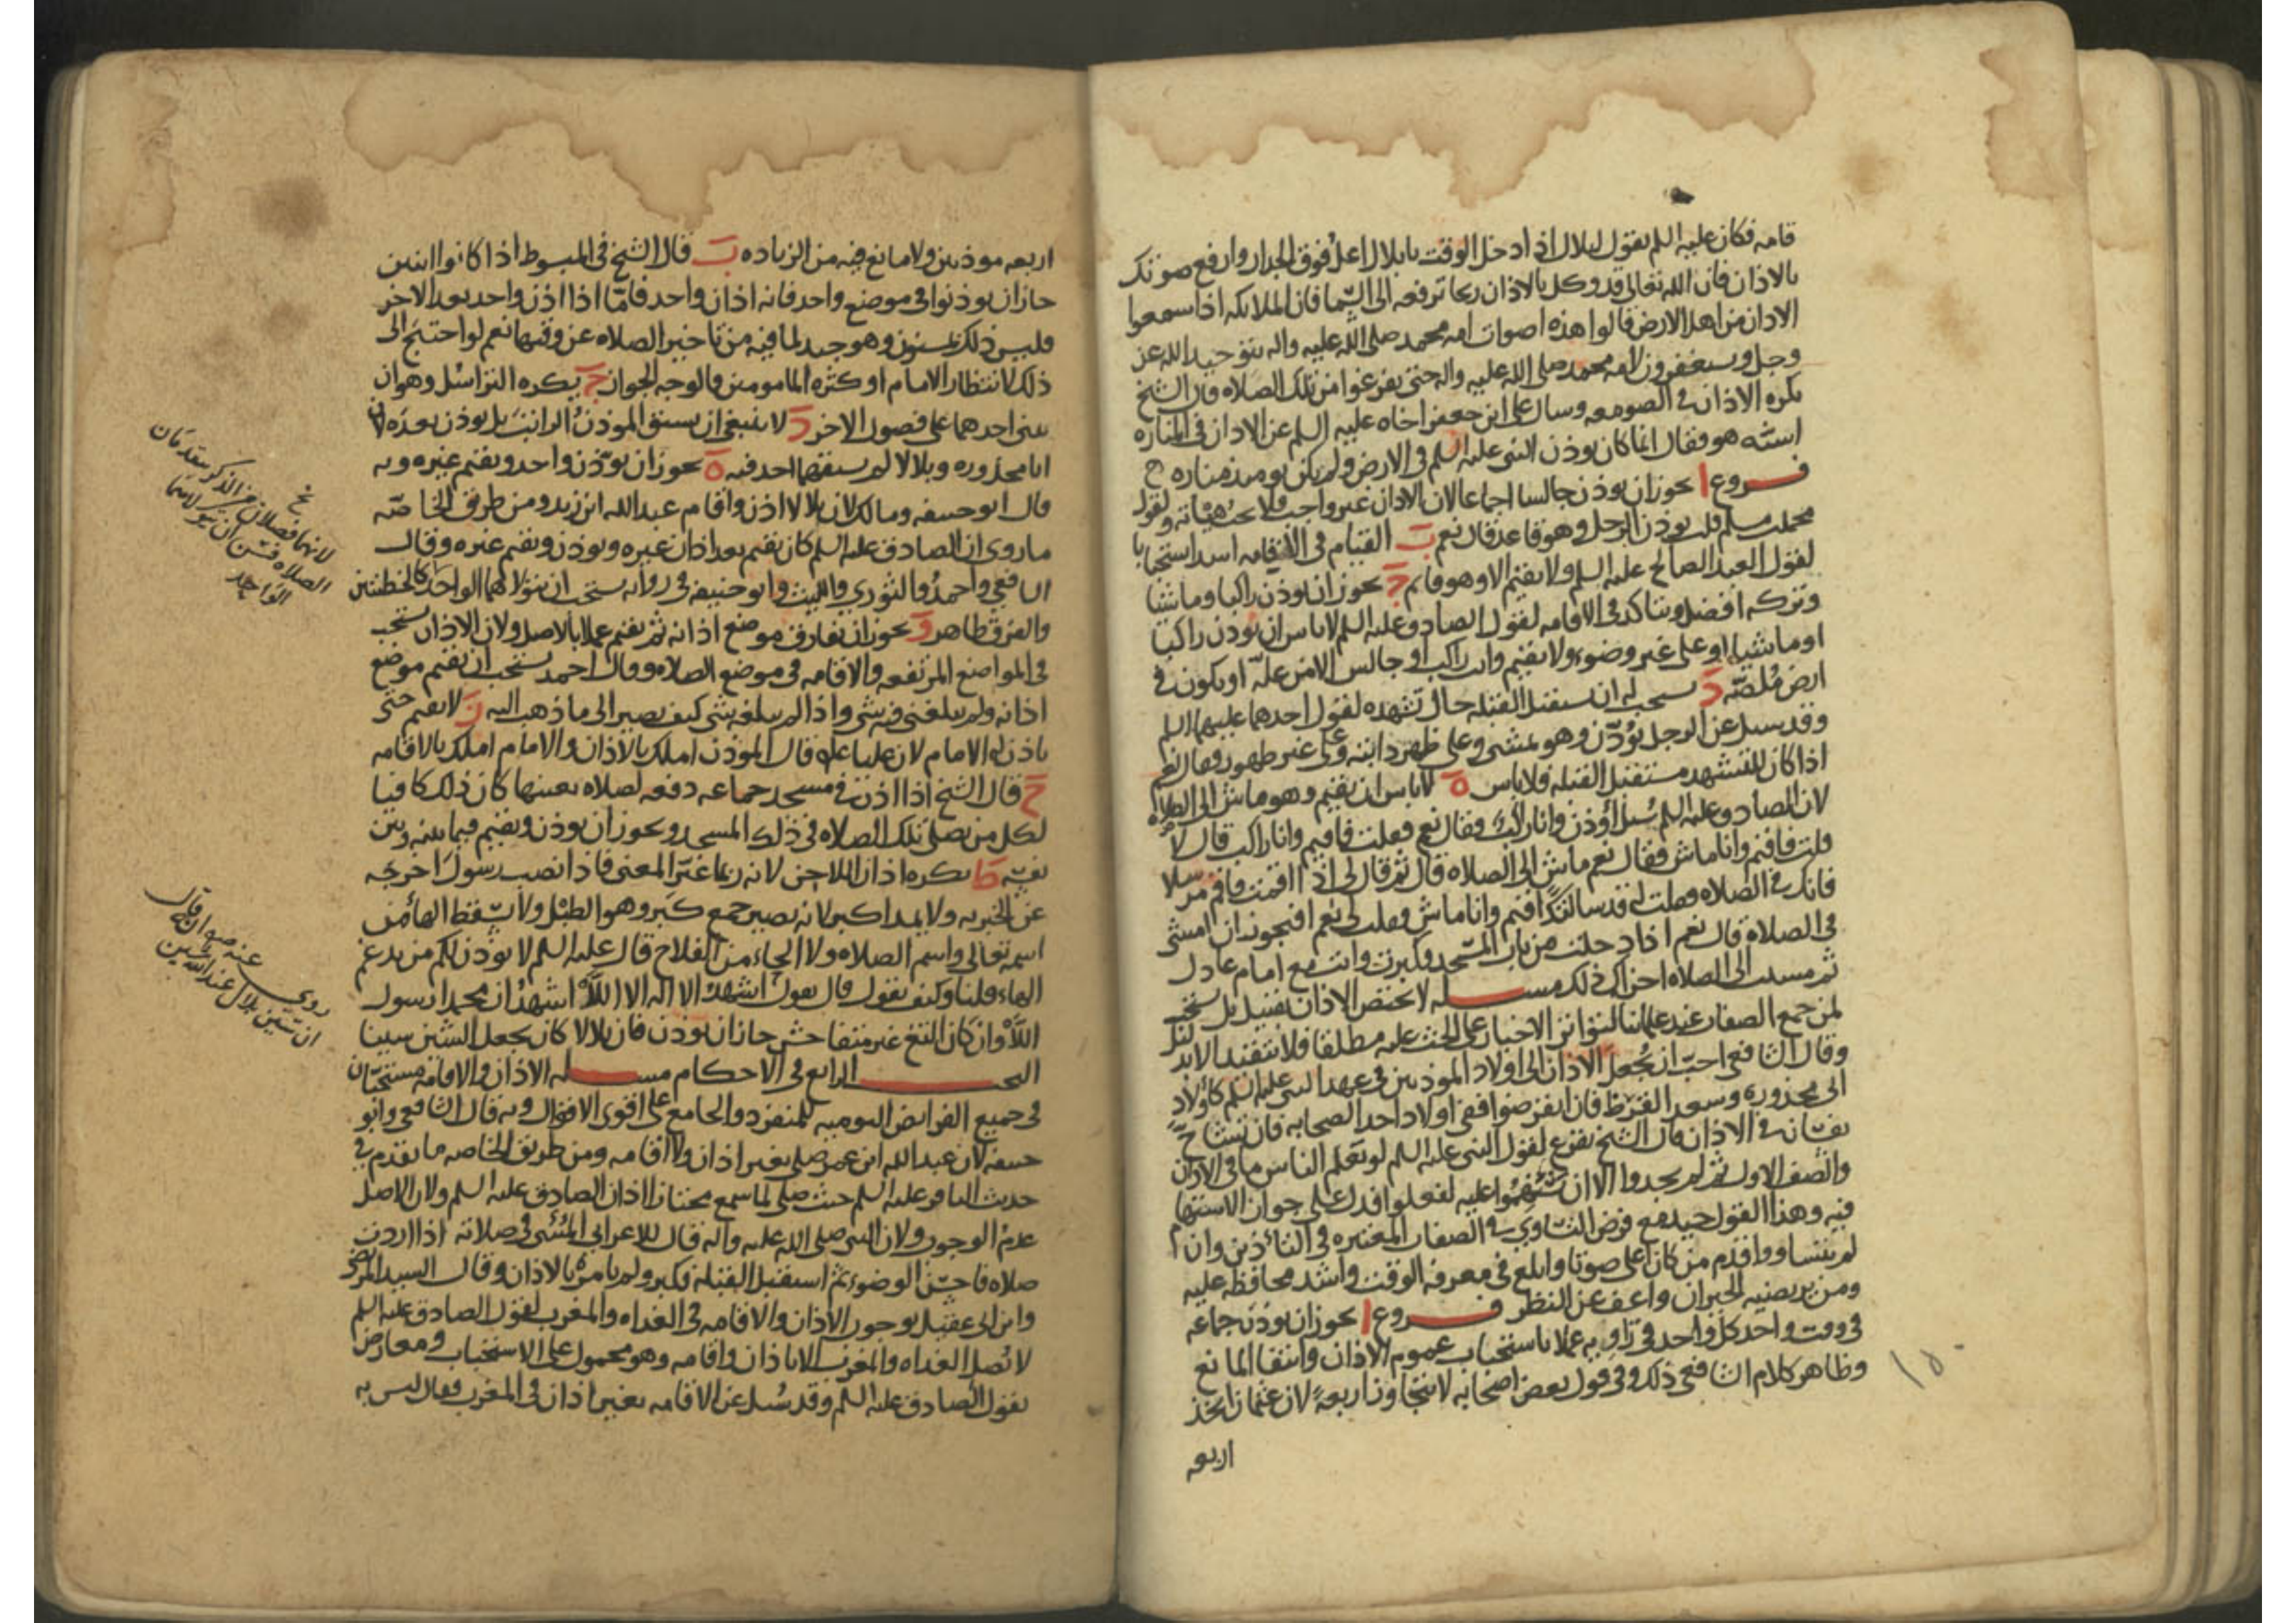 قامه فكان عليه السلم يقول لبلال اذا دخل الوقت يا بلال اعل فوق الجدار وارفع صوتك
بالاذان فان الله تعالى قد وكل بالاذان ريحا ترفعه الى السما فان الملايكه اذا سمعوا
الاذان من اهل الارض قالوا هذه اصوات امه محمد صلى الله عليه واله بتوحيد الله عز
وجل ويستغفرون لامه محمد صلى الله عليه واله حتى يفرغوا من تلك الصلاه قال الشيخ
يكره الاذان في الصومعه وسال على ابن جعفر اخاه عليه السلم عن الاذان في المناره
اسنه هو فقال انما كان يوذن للنبى عليه السلم في الارض ولم يكن يوميذ مناره
فروع ا يجوز ان يوذن جالسا اجماعا لان الاذان غير واجب فلا يجب هياته ولقول
محمد بن مسلم قلت يوذن الرجل وهو قاعد قال نعم ب القيام في الاقامه اشد استحبابا
لقول العبد الصالح عليه السلم ولا يقيم الا وهو قايم ج يجوز ان يوذن راكبا وماشيا
وتركه افضل ويتاكد في الاقامه لقول الصادق عليه السلم لا باس ان يوذن راكبا
او ماشيا او على غير وضوء ولا يقيم وانت راكب او جالس الا من علة او يكون في
ارض ملصه د يستحب له ان يستقبل القبله حال تشهده لقول احدهما عليهما السلم
وقد سيل عن الرجل يوذن وهو يمشى وعلى ظهر دابته وعلى غير طهور فقال نعم
اذا كان المتشهد مستقبل القبله فلا باس ه لا باس ان يقيم وهو ماش الى الصلاه
لان الصادق عليه السلم سئل أوذن وانا راكب فقال نعم فقلت فاقيم وانا راكب قال لا
قلت فاقيم وانا ماش فقال نعم ماش الى الصلاه قال ثم قال لى اذا اقمت فاقم مترسلا
فانك في الصلاه فقلت له قد سالتك اقيم وانا ماش وقلت لى نعم افيجوز ان امشى
في الصلاة قال نعم اذا دخلت من باب المسجد وكبرت وانت مع امام عادل
ثم مشيت الى الصلاه اجزاك ذلك مسله لا يختص الاذان بقبيل بل يستحب
لمن جمع الصفات عند علمائنا لتواتر الاخبار على الحث عليه مطلقا فلا يتقيد الا بدليل
وقال الشافعي احب ان يجعل الاذان الى اولاد الموذنين في عهد النبي عليه السلم كاولاد
ابى محذوره وسعد القرظ فان انقرضوا ففي اولاد احد الصحابه فان تشاح
نفسان في الاذان قال الشيخ يقرع لقول النبى عليه السلم لو يعلم الناس ما في الاذان
والصف الاول ثم لم يجدوا الا ان يستهموا عليه لفعلوا فدل على جواز الاستهام
فيه وهذا القول جيد مع فرض التساوي في الصفات المعتبره في التاذين وان
لم يتساووا قدم من كان اعلى صوتا وابلغ في معرفه الوقت واشد محافظه عليه
ومن يرتضيه الجيران واعف عن النظر فروع ا يجوز ان يوذن جماعه
في وقت واحد كل واحد في زاويه عملا باستحباب عموم الاذان وانتفا المانع
وظاهر كلام الشافعى ذلك وفى قول بعض اصحابه لا يتجاوز اربعة لان عثمان اتخذ
اربعه
١٥٠
اربعه موذنين ولا مانع فيه من الزياده ب قال الشيخ في المبسوط اذا كانوا اثنين
جاز ان يوذنوا في موضع واحد فانه اذان واحد فامّا اذا اذن واحد بعد الاخر
فليس ذلك بمسنون وهو جيد لما فيه من تاخير الصلاه عن وقتها نعم لو احتيج الى
ذلك لانتظار الامام او كثره المامومين فالوجه الجواز ج يكره التراسل وهو ان
يبنى احدهما على فصول الاخر د لا ينبغى ان يسبق الموذن الراتب بل يوذن بعده لان
ابا محذوره وبلالا لم يسبقهما احد فيه ه يجوز ان يوذن واحد ويقيم غيره وبه
قال ابو حنيفه ومالك لان بلالا اذن واقام عبد الله ابن زيد ومن طريق الخاصّه
ما روى ان الصادق عليه السلم كان يقيم بعد اذان غيره ويوذن ويقيم غيره وقال
الشافعي واحمد والثوري والليث وابو حنيفه في روايه يستحب ان يتولاهما الواحد كالخطبتين
والفرق ظاهر و يجوز ان يفارق موضع اذانه ثم يقيم عملا بالاصل ولان الاذان يستحب
في المواضع المرتفعه والاقامه في موضع الصلاه وقال احمد يستحب ان يقيم موضع
اذانه ولم يبلغنى فيه شى واذا لم يبلغه شى كيف يصير الى ما ذهب اليه ز لا يقيم حتى
ياذن له الامام لان عليا عليه قال الموذن املك بالاذان والامام املك بالاقامه
ح قال الشيخ اذا اذن في مسجد جماعه دفعه لصلاه بعينها كان ذلك كافيا
لكل من يصلى تلك الصلاه في ذلك المسجد ويجوز ان يوذن ويقيم فيما بينه وبين
نفسه ط يكره اذان اللاحن لانه ربما غيّر المعنى فاذا نصب رسول اخرجه
عن الخبريه ولا يمد اكبر لانه يصير جمع كبر وهو الطبل ولا يسقط الهاء من
اسمه تعالى واسم الصلاه ولا الحاء من الفلاح قال عليه السلم لا يوذن لكم من يدغم
الهاء قلنا وكيف يقول قال يقول اشهد الا اله الا اللاّ اشهد ان محمدا رسول
اللاّ وان كان الثغ غير متفاحش جاز ان يوذن فان بلالا كان يجعل الشين سينا
البحث الرابع في الاحكام مسله الاذان والاقامه مستحبان
في جميع الفرايض اليوميه للمنفرد والجامع على اقوى الاقوال وبه قال الشافعي وابو
حنيفه لان عبد الله ابن عمر صلى بغير اذان ولا اقامه ومن طريق الخاصه ما تقدم في
حديث الباقر عليه السلم حيث صلى لما سمع مجتازا اذان الصادق عليه السلم ولان الاصل
عدم الوجوب ولان النبى صلى الله عليه واله قال للاعرابى المسئ في صلاته اذا اردت
صلاه فاحسن الوضوء ثم استقبل القبله فكبر ولم يامره بالاذان وقال السيد المرتضى
وابن ابى عقيل بوجوب الاذان والاقامه في الغداه والمغرب لقول الصادق عليه السلم
لا تصل الغداه والمغرب الا باذان واقامه وهو محمول على الاستحباب ومعارض
بقول الصادق عليه السلم وقد سُيل عن الاقامه بغير اذان في المغرب فقال ليس به
لانهما فصلان من الذكر يتقدمان
الصلاه فسن ان يتولاهما
الواحد
روى عنه صلى قال
ان سين بلال عند الله شين